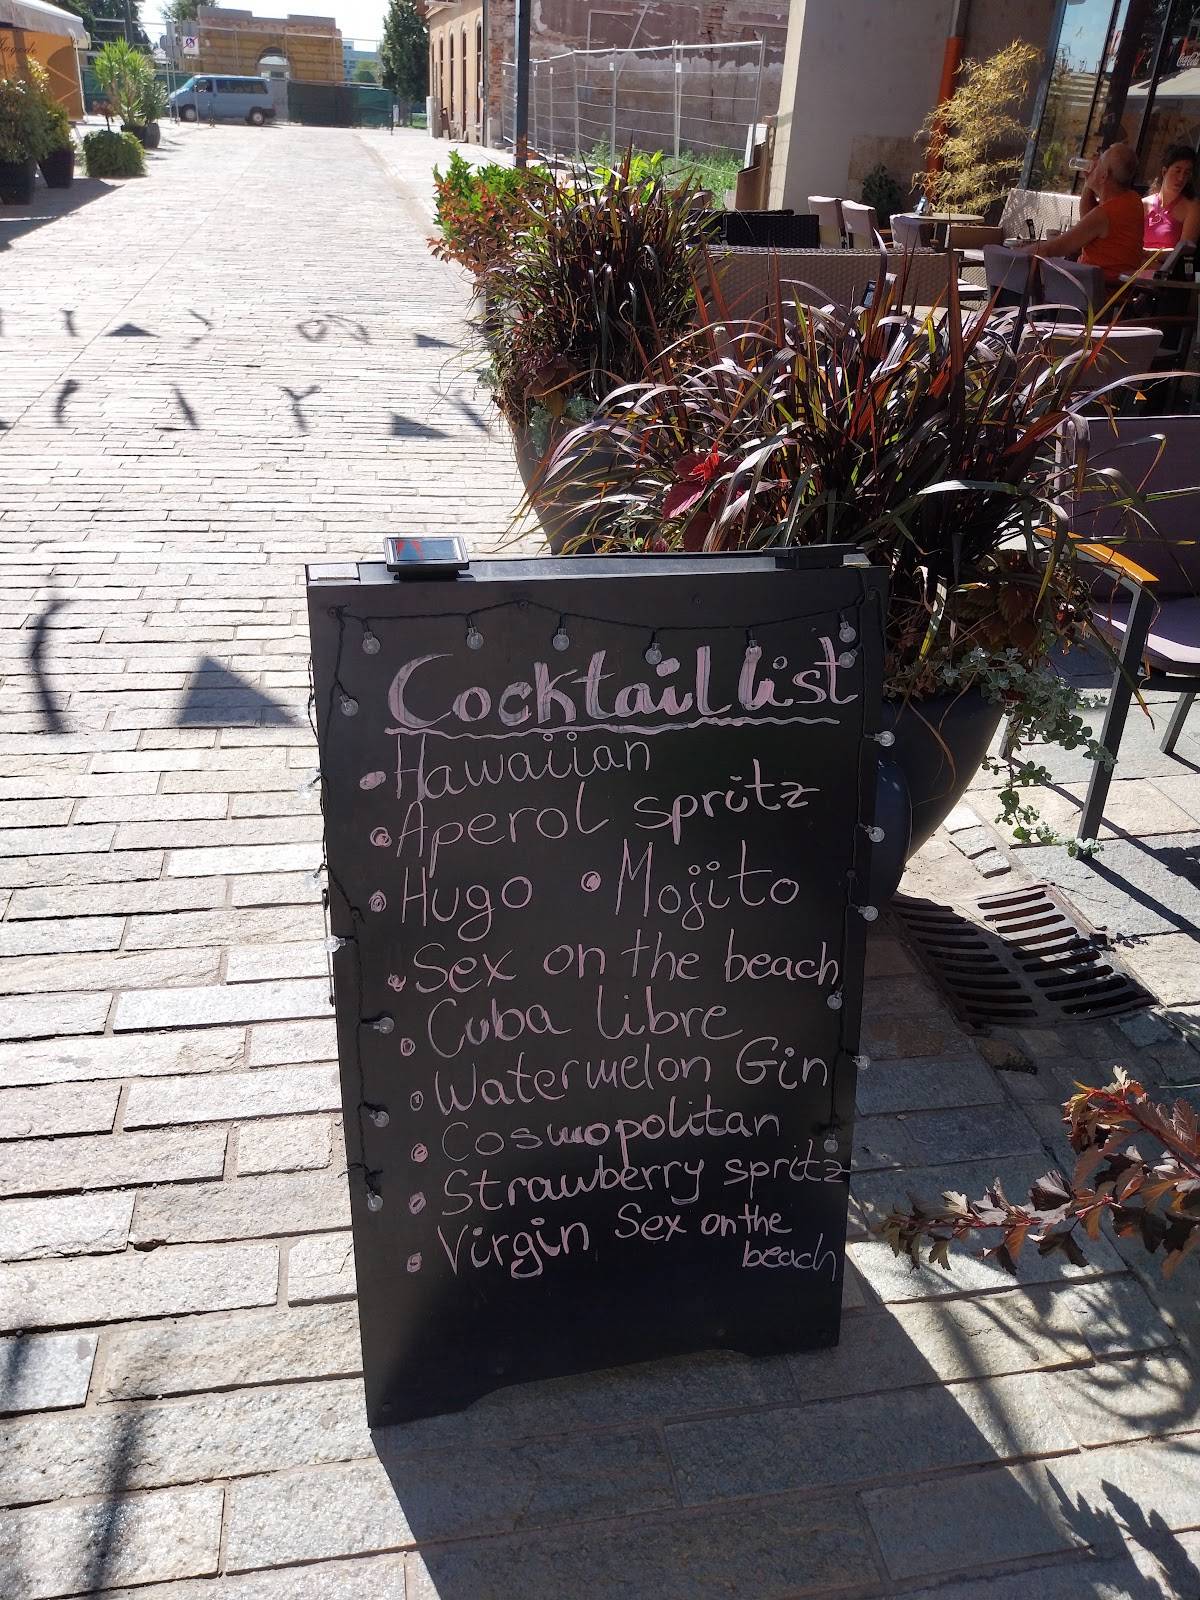 Cocktail list
• Hawaiian
• Aperol spritz
• Hugo • Mojito
• Sex on the beach
• Cuba libre
• Watermelon Gin
• Cosmopolitan
• Strawberry spritz
• Virgin Sex on the
beach